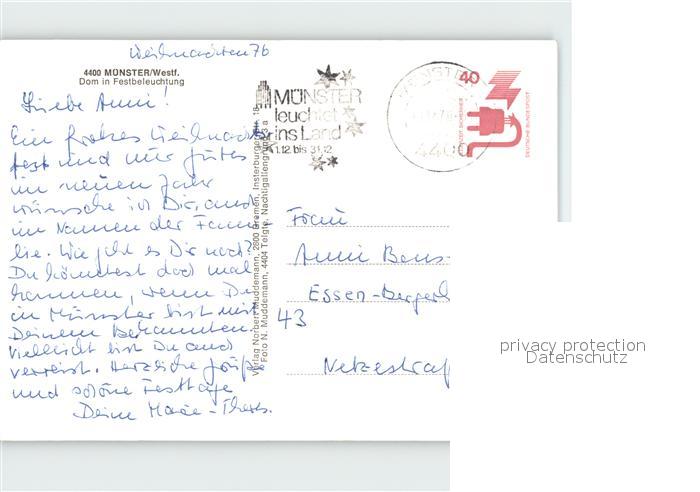 Weihnachten 76
4400 MÜNSTER/Westf.
Dom in Festbeleuchtung
Liebe Anni!
Ein frohes Weihnachts-
fest und nur gutes
im neuen Jahr
wünsche ich Dir, auch
im Namen der Fami-
lie. Wie geht es Dir noch?
Du könntest doch mal
kommen, wenn Du
in Münster bist mit
Deinem Bekannten.
Vielleicht bist Du auch
verreist. Herzliche Grüße
und schöne Festtage
Deine Marie-Theres.
Verlag Norbert Muddemann, 2800 Bremen, Insterburger Str.
Foto N. Muddemann, 4404 Telgte, Nachtigallengrund 3 a
MÜNSTER
leuchtet
ins Land
1.12. bis 31.12.
MÜNSTER
4400
40
JEDERZEIT SICHERHEIT
DEUTSCHE BUNDESPOST
Frau
Anni Bens-
Essen-Bergerh
43
Netzestraß
privacy protection
Datenschutz